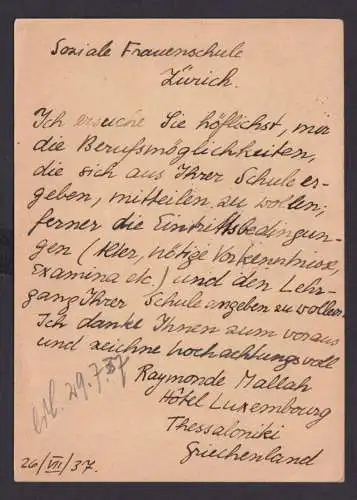 Soziale Frauenschule
Zürich.
Ich ersuche Sie höflichst, mir
die Berufsmöglichkeiten,
die sich aus Ihrer Schule er-
geben, mitteilen zu wollen;
ferner die Eintrittsbedingun-
gen (Alter, nötige Vorkenntnisse,
Examina etc.) und den Lehr-
gang Ihrer Schule angeben zu wollen.
Ich danke Ihnen zum voraus
und zeichne hochachtungsvoll
Raymonde Mallah
Hôtel Luxembourg
Thessaloniki
Griechenland
erl. 29.7.37
26/VII/37.